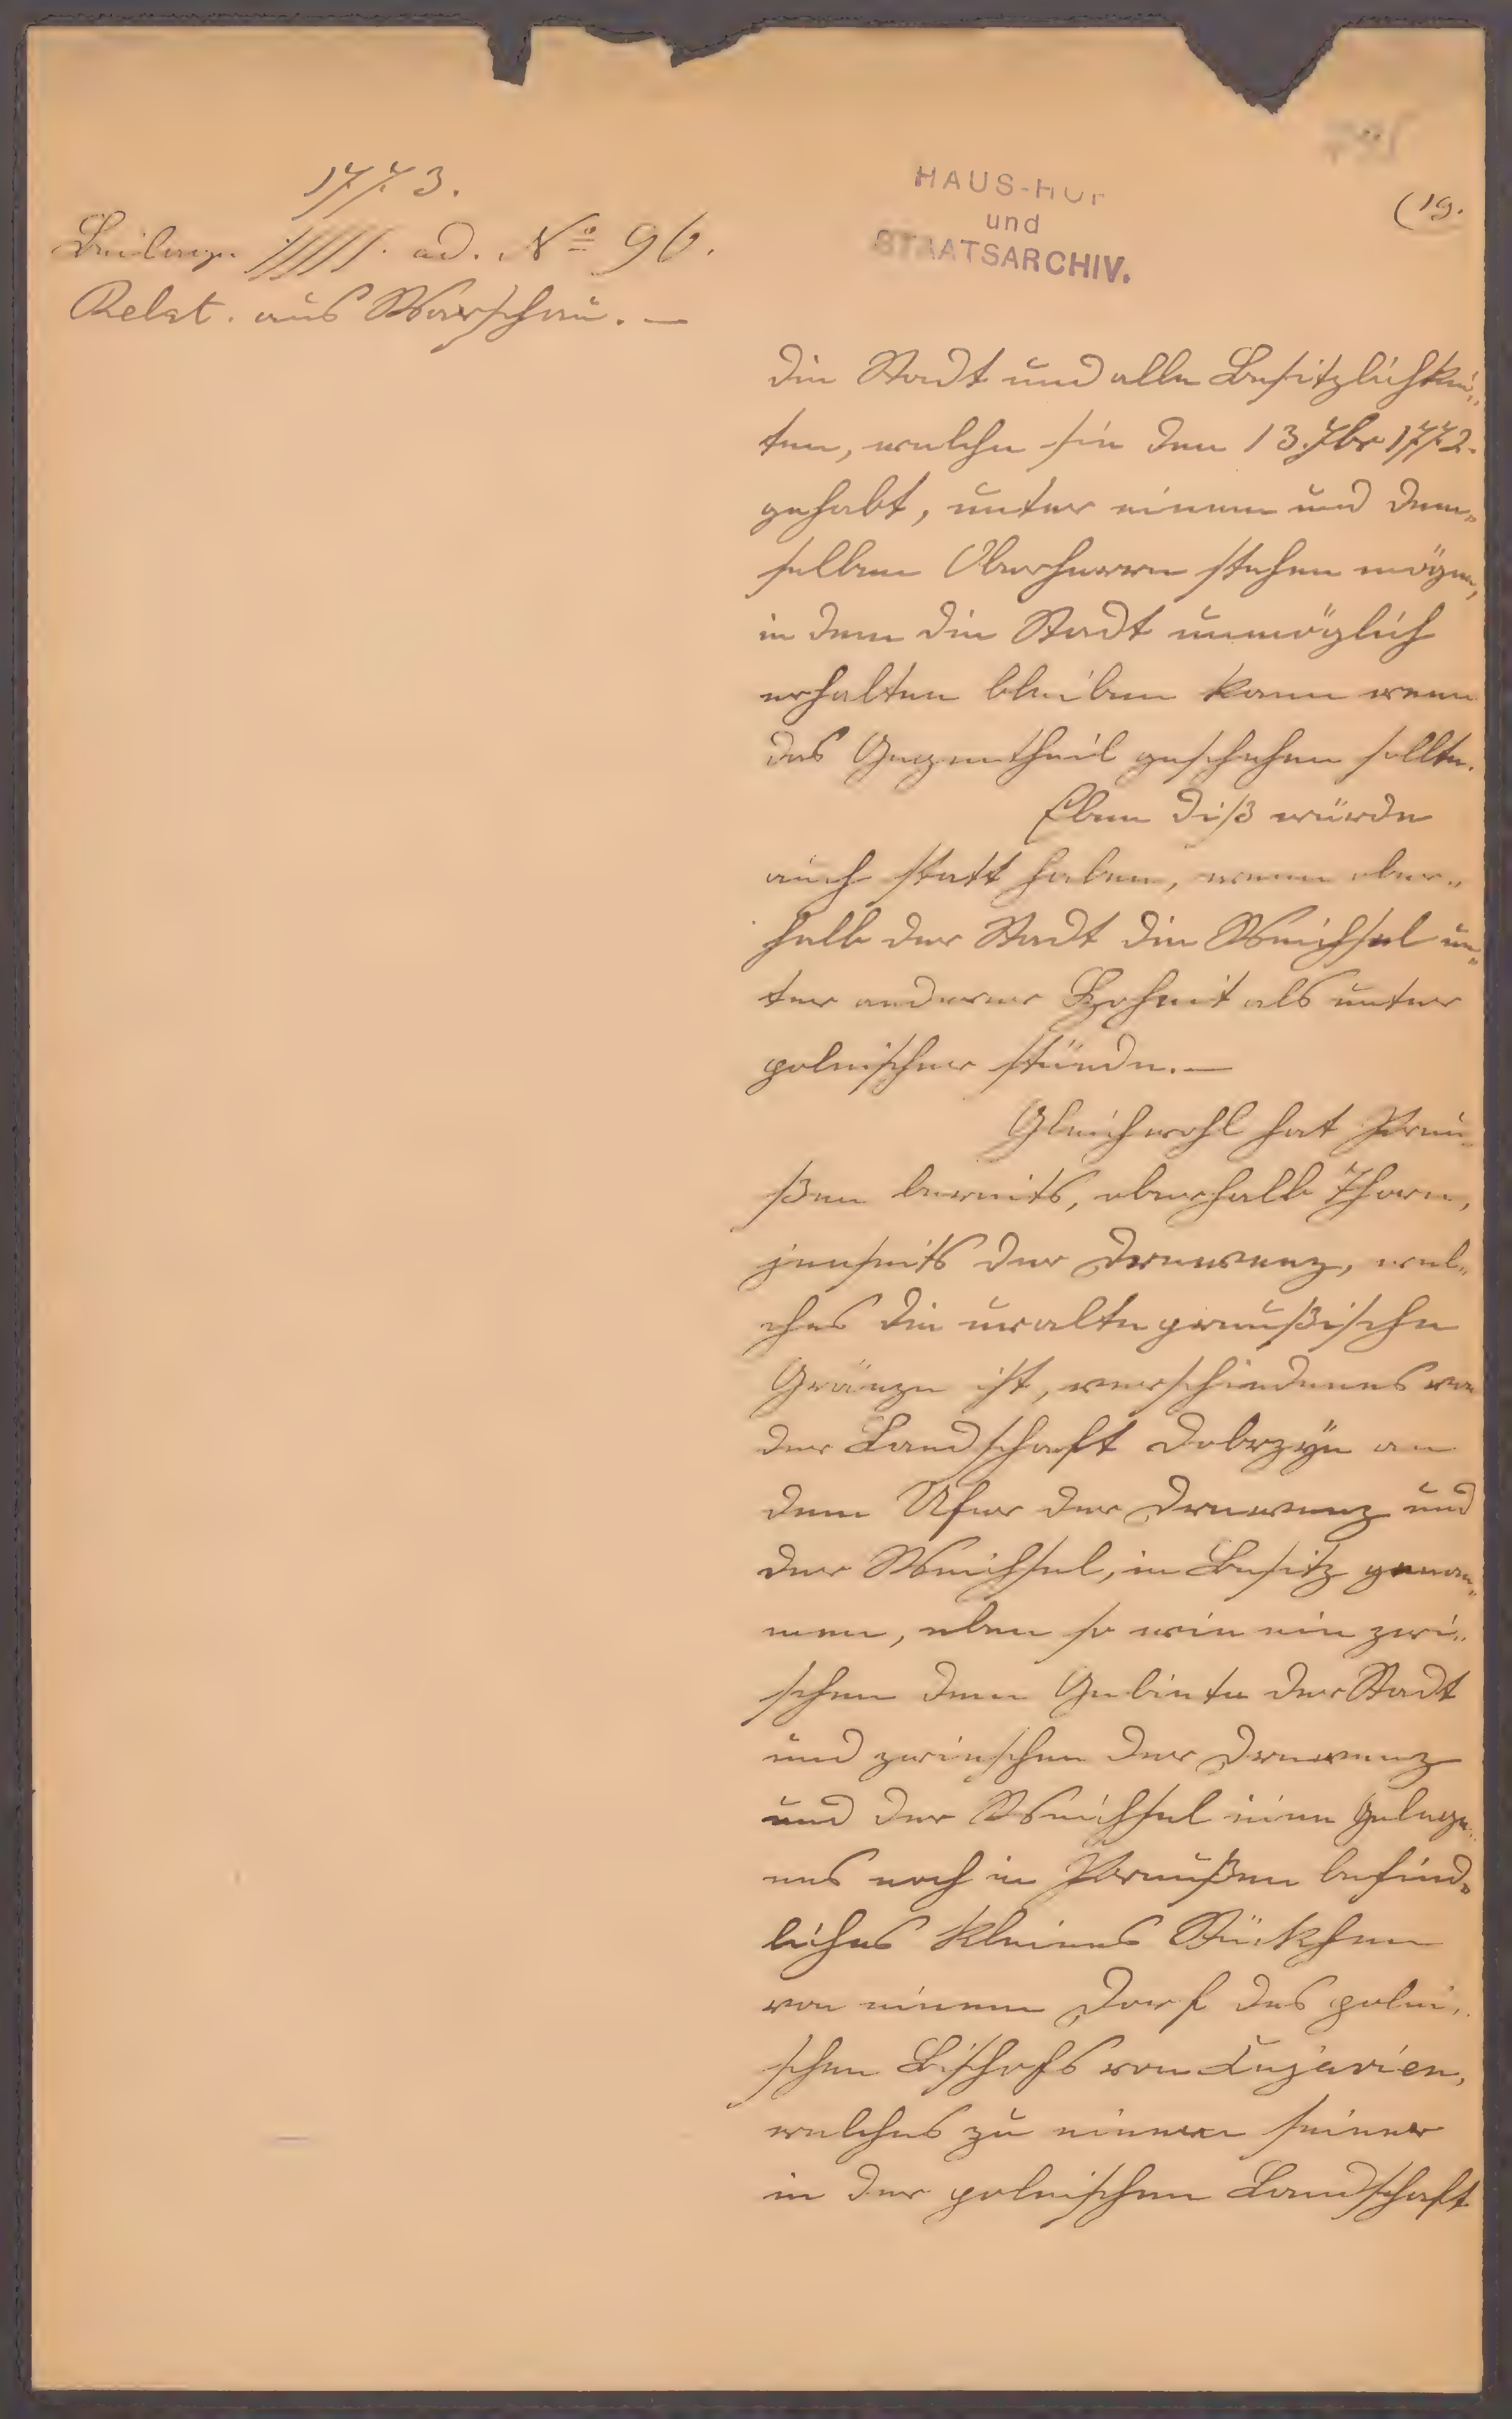 1773.
Beilage ad. No 96.
Relat. aus Warschau. —
HAUS-HOF
und
STAATSARCHIV.
(19.
die Stadt und alle Besitzlichkei„
ten, welche sie den 13. 7br 1772.
gehabt, unter einem und dem„
selben Oberherrn stehen mögen,
in dem die Stadt unmöglich
erhalten bleiben kann wenn
das Gegentheil geschehen sollte.
Eben diß würde
auch statt haben, wenn ober„
halb der Stadt die Weichsel un„
ter anderer Hoheit als unter
polnischer stünde. —
Gleichwohl hat Preu„
ßen bereits, oberhalb Thorn,
jenseits der Drewenz, wel„
ches die uralte preußische
Gränze ist, verschiedenes von
der Landschaft Dobrzÿn an
dem Ufer der Drewenz und
der Weichsel, in Besitz genom„
men, eben so wie ein zwi„
schen dem Gebiete der Stadt
und zwieschen der Drewenz
und der Weichsel inne gelege„
nes noch in Preußen befind„
liches kleines Stückchen
von einem Dorf des polni„
schen Bischofs von Cujavien,
welches zu einem seiner
in der polnischen Landschaft